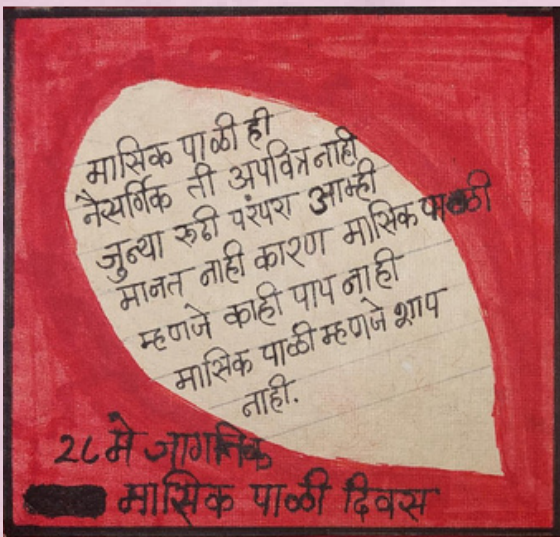 मासिक पाळी ही
नैसर्गिक ती अपवित्र नाही
जुन्या रूढी परंपरा आम्ही
मानत नाही कारण मासिक पाळी
म्हणजे काही पाप नाही
मासिक पाळी म्हणजे शाप
नाही.
२८ मे जागतिक
मासिक पाळी दिवस